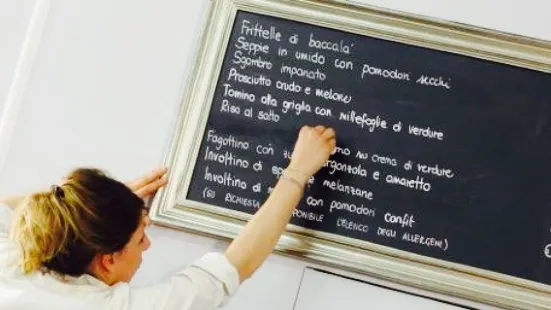 Frittelle di baccalà
Seppie in umido con pomodori secchi
Sgombro impanato
Prosciutto crudo e melone
Tomino alla griglia con millefoglie di verdure
Riso al salto
Fagottino con su crema di verdure
Involtino di gorgonzola e amaretto
Involtino di melanzane
con pomodori confit
(SU RICHIESTA DISPONIBILE L'ELENCO DEGLI ALLERGENI)